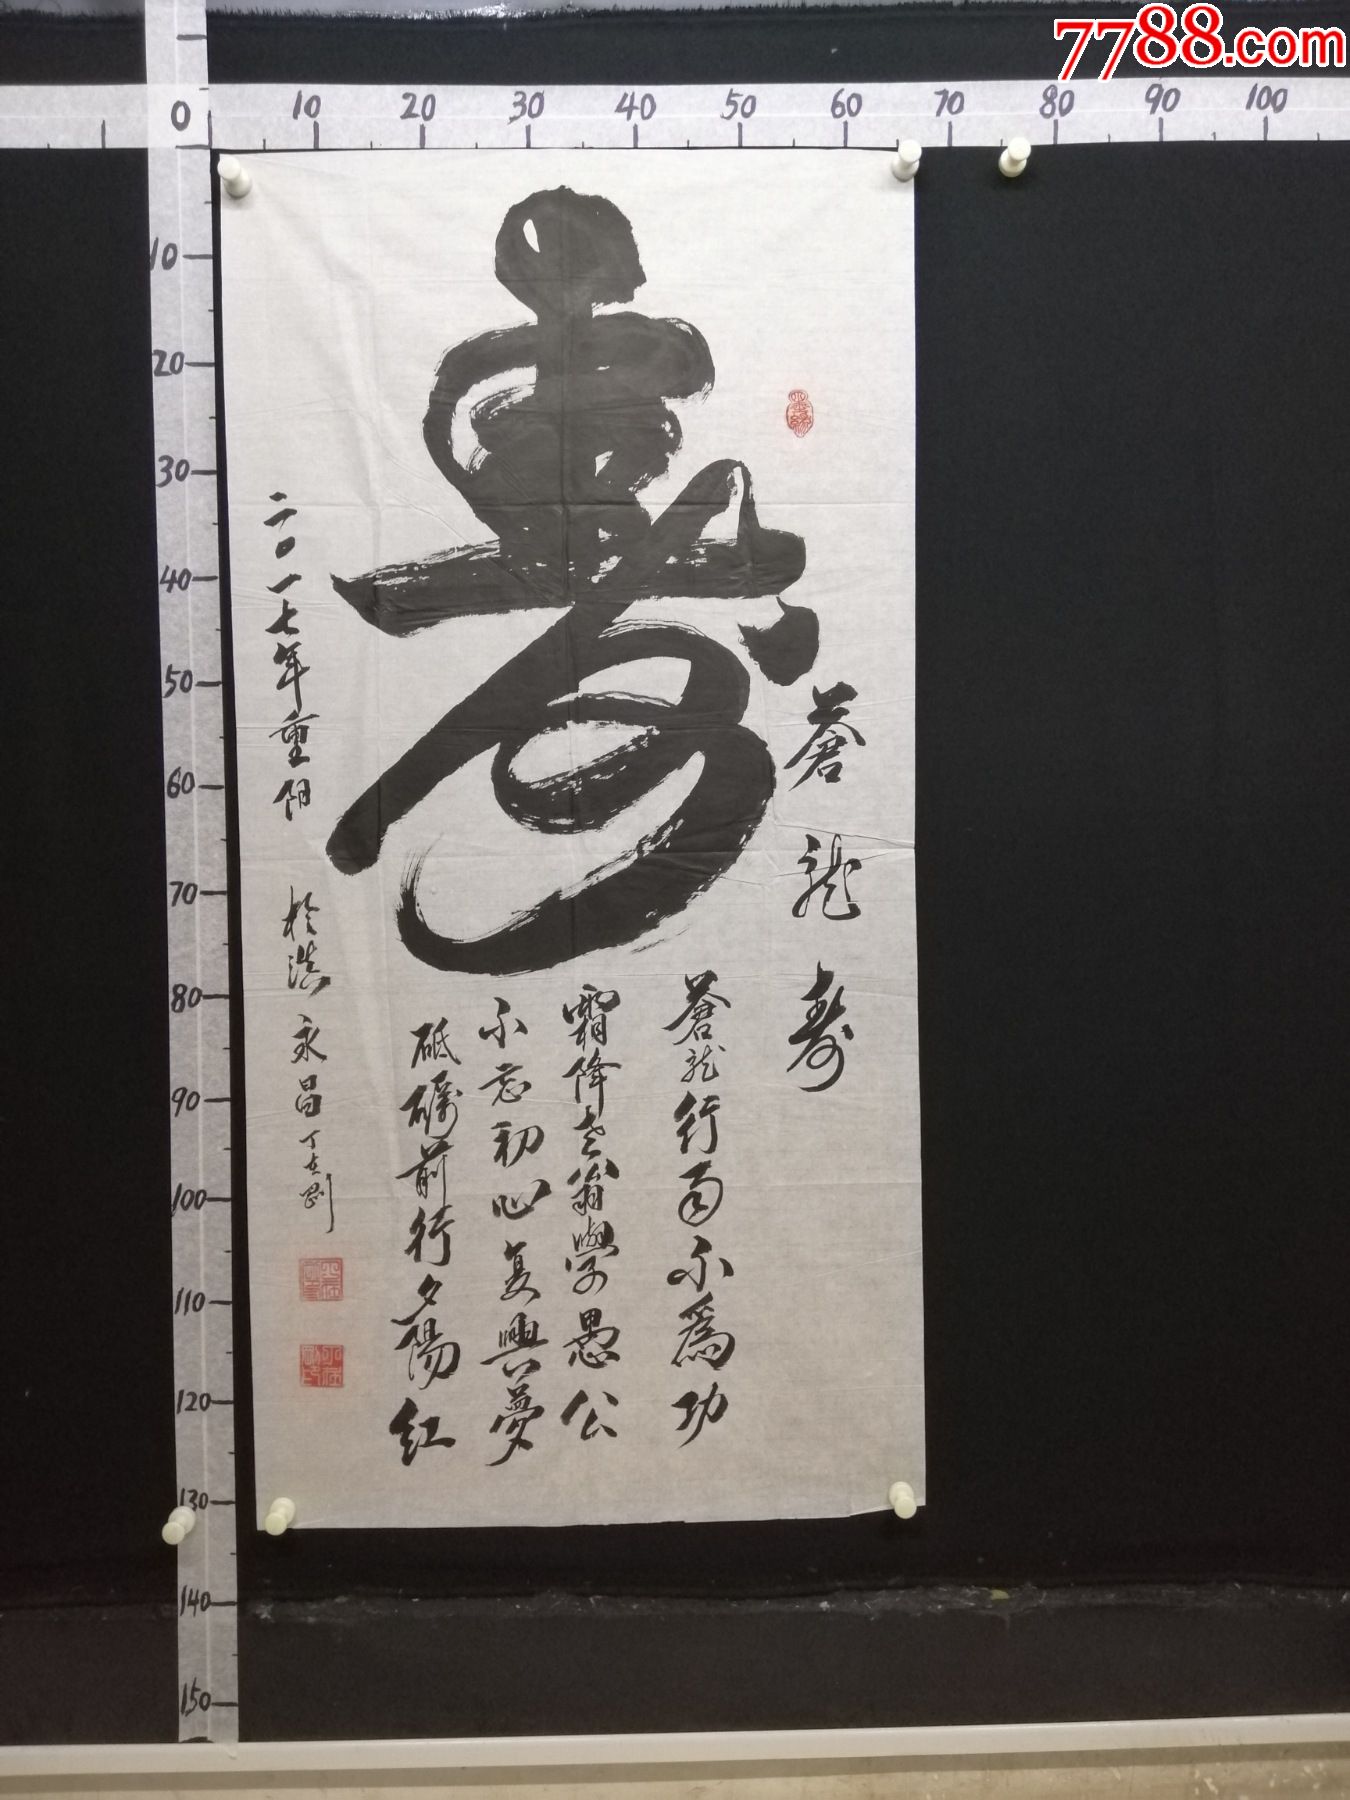 7788.com
0 10 20 30 40 50 60 70 80 90 100
10
20
30
40
50
60
70
80
90
100
110
120
130
140
150
壽
蒼龍壽
蒼龍行雨不為功
霜降老翁學愚公
不忘初心复興夢
砥礪前行夕陽紅
二〇一七年重阳
於滇永昌丁在剛